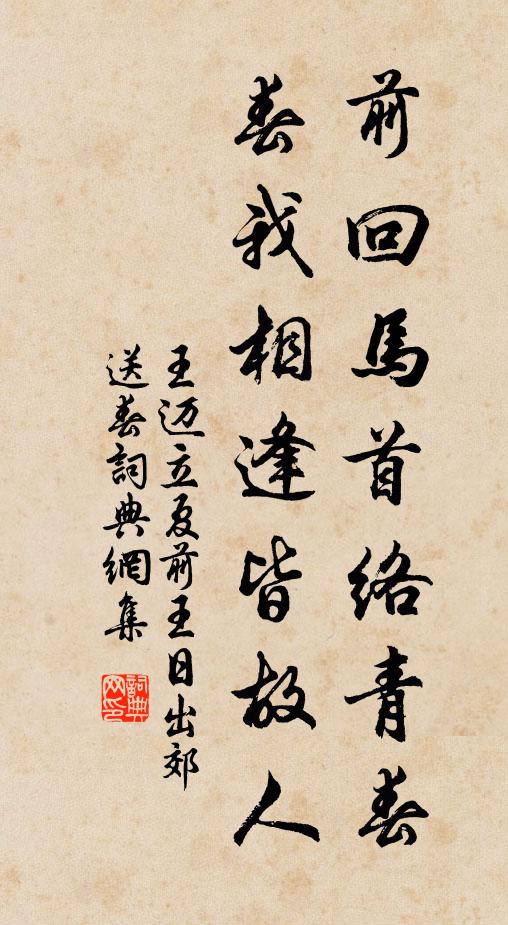 前回馬首络青春
春我相逢皆故人
王迈立夏前王日出郊
送春詞典網集
詞典
网印